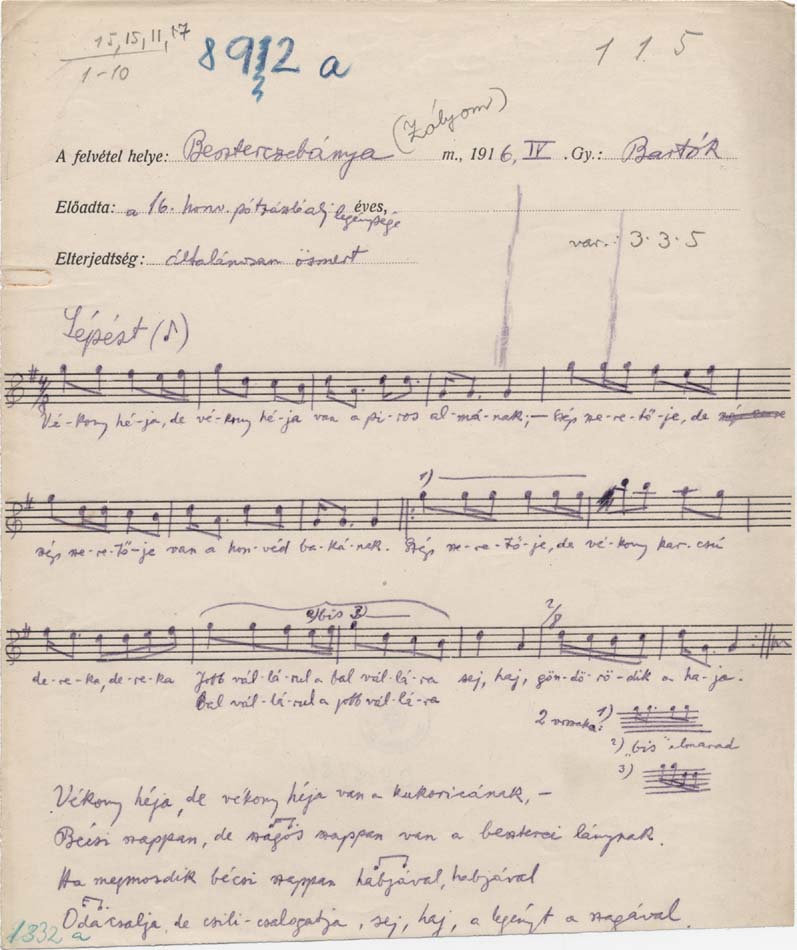 15, 15, 11, 17
1-10
8912 a
115
A felvétel helye: Beszterczebánya (Zólyom) m., 1916, IV. Gy.: Bartók
Előadta: a 16. honv. pótzászlóalj legénysége éves,
Elterjedtség: általánosan ösmert
var.: 3.3.5
Lépést (♪)
Vé-kony hé-ja, de vé-kony hé-ja van a pi-ros al-má-nak; — Szép sze-re-tő-je, de
1)
szép sze-re-tő-je van a hon-véd ba-ká-nak. Szép sze-re-tő-je, de vé-kony kar-csú
2) bis 3)
2/8
de-re-ka, de-re-ka Jobb vál-lá-rul a bal vál-lá-ra sej, haj, gön-dö-rö-dik a ha-ja.
Bal vál-lá-rul a jobb vál-lá-ra
2 versszaka: 1)
2) "bis" elmarad
3)
Vékony héja, de vékony héja van a kukoricának, –
Bécsi szappan, de szagos szappan van a beszterci lánynak.
Ha megmosdik bécsi szappan habjával, habjával
Oda csalja, de csili-csalogatja, sej, haj, a legényt a szagával.
1332 a